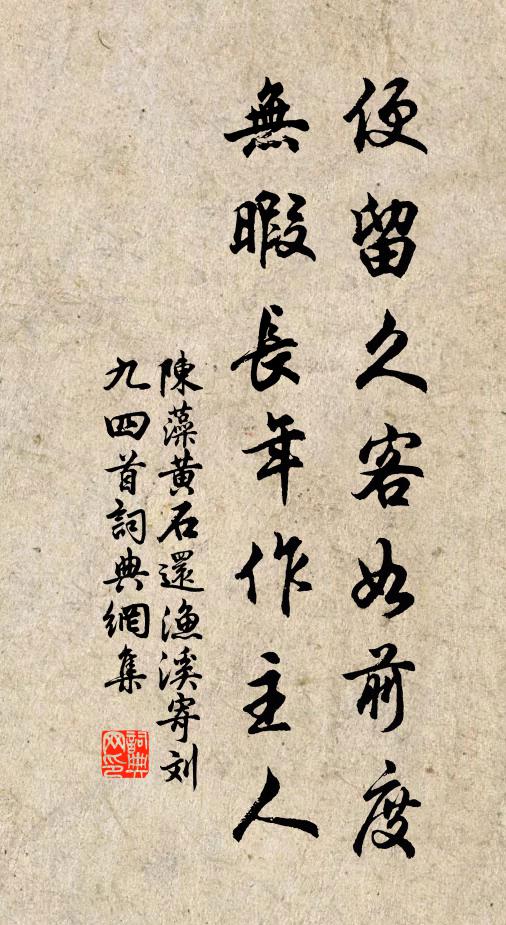 便留久客如前度
無暇長年作主人
陳藻黄石還漁溪寄刘
九四首詞典網集
詞典
网印